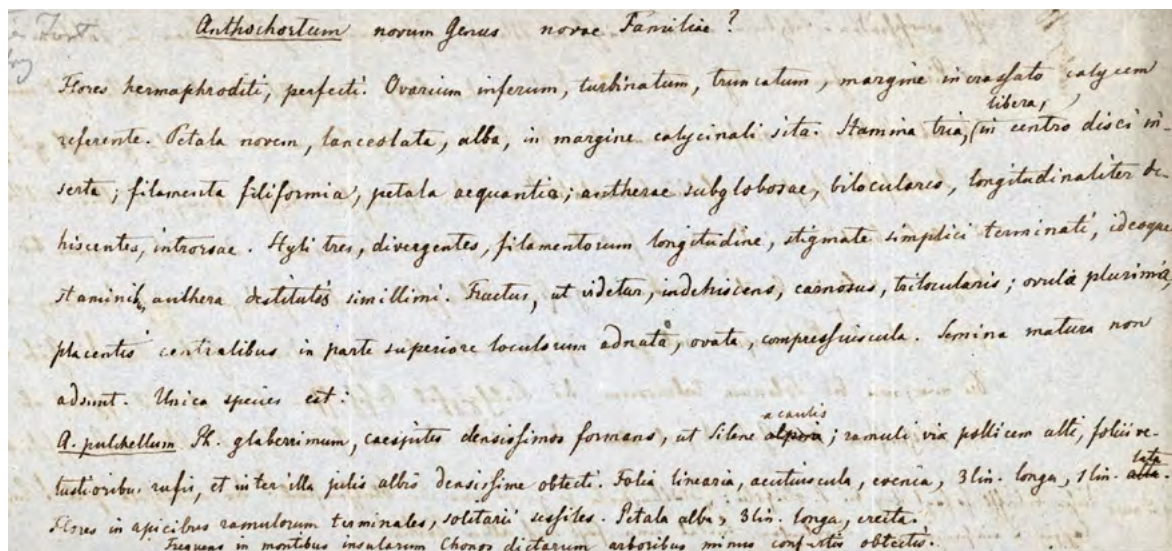 Anthochortum novum Genus novae Familiae?
Flores hermaphroditi, perfecti. Ovarium inferum, turbinatum, truncatum, margine incrassato calycem
libera,
referente. Petala novem, lanceolata, alba, in margine calycinali sita. Stamina tria, (in centro disci in-
serta; filamenta filiformia, petala aequantia; antherae subglobosae, biloculares, longitudinaliter de-
hiscentes, introrsae. Styli tres, divergentes, filamentorum longitudine, stigmate simplici terminati, ideoque
staminib, anthera destitutis simillimi. Fructus, ut videtur, indehiscens, carnosus, trilocularis; ovula plurima,
placentis centralibus in parte superiore loculorum adnata, ovata, compressiuscula. Semina matura non
adsunt. Unica species est:
acaulis
A. pulchellum Ph. glaberrimum, caespites densissimos formans, ut Silene alpina; ramuli vix pollicem alti, foliis ve-
tustioribus rufis, et inter illa pilis albis densissime obtecti. Folia linearia, acutiuscula, evenia, 3 lin. longa, 1 lin. alta.
lata
Flores in apicibus ramulorum terminales, solitarii sessiles. Petala alba, 3 lin. longa, erecta.
Frequens in montibus insularum Chonos dictarum arboribus minus confertis obtectis.